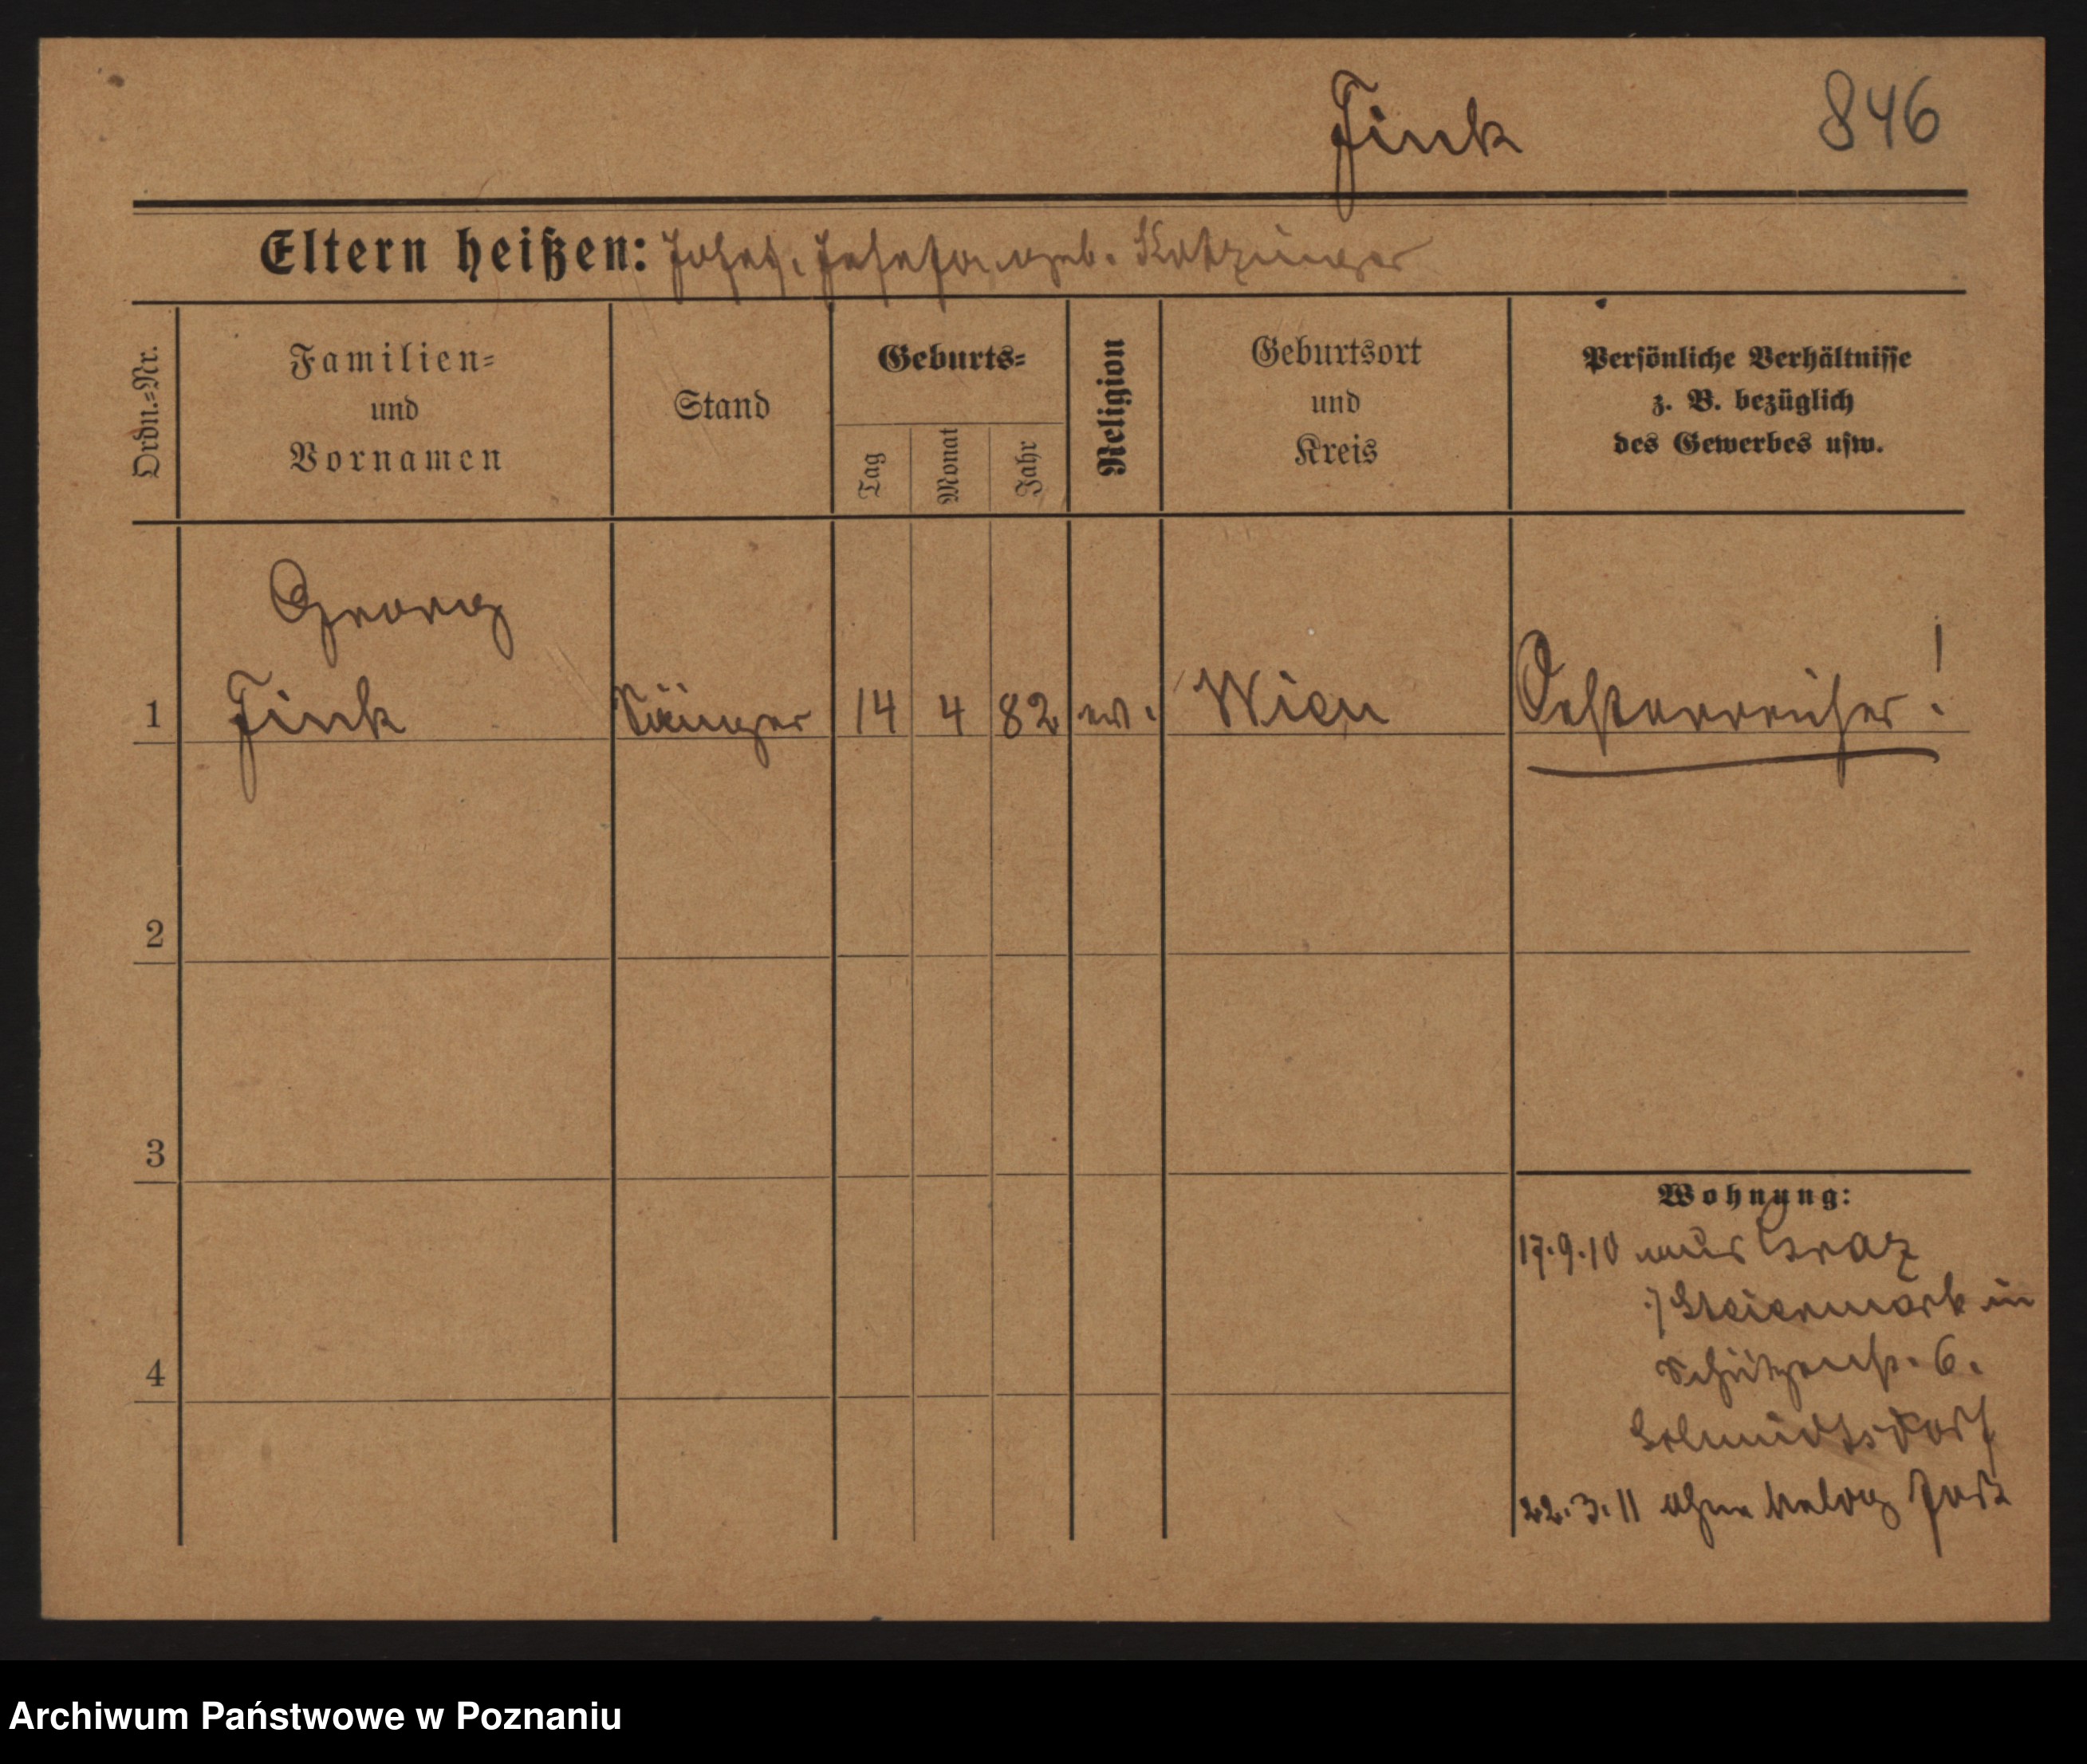 Fink
846
Eltern heißen: Josef, Josefa geb. Katzinger
Ordn.=Nr.
Familien=
und
Vornamen
Stand
Geburts=
Tag
Monat
Jahr
Religion
Geburtsort
und
Kreis
Persönliche Verhältnisse
z. B. bezüglich
des Gewerbes usw.
Georg
1 Fink Sänger 14 4 82 ev. Wien Oesterreicher!
2
3
4
Wohnung:
17.9.10 aus Graz
Steiermark in
Schützenstr. 6.
Schmidtsdorf
22.3.11 ohne
Archiwum Państwowe w Poznaniu